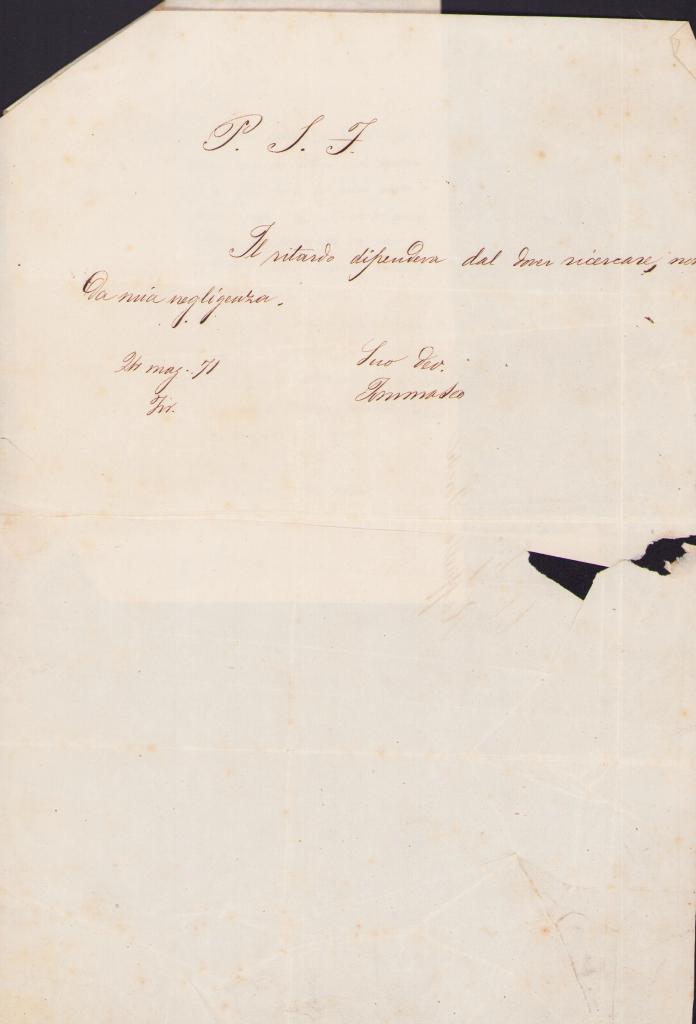 P. S. J.
Il ritardo dipendeva dal dover ricercare, non
da mia negligenza.
24 mag. 71
Fir.
Suo dev.
Tommaseo